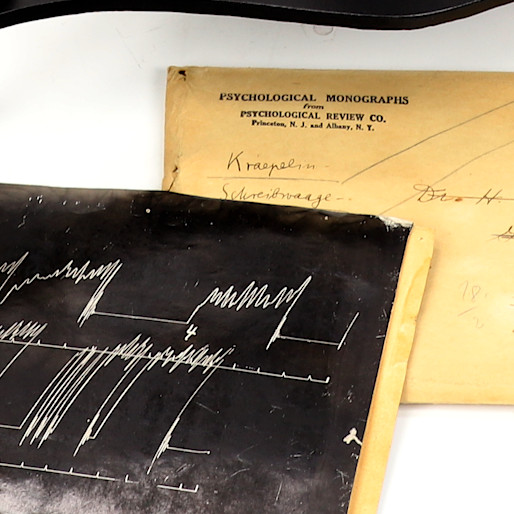 PSYCHOLOGICAL MONOGRAPHS
from
PSYCHOLOGICAL REVIEW CO.
Princeton, N. J. and Albany, N. Y.
Kraepelin
Schreibwaage--
Dr. H.
18
4